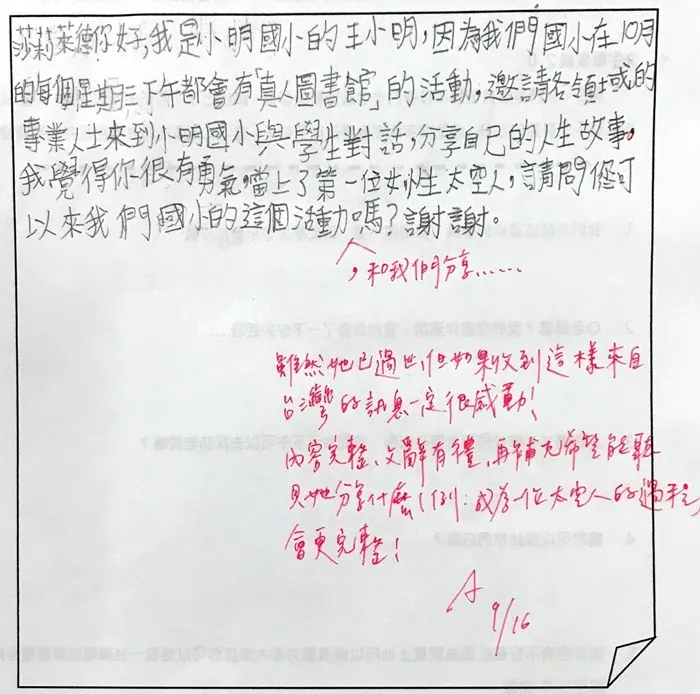 莎莉萊德你好,我是小明國小的王小明,因為我們國小在10月
的每個星期三下午都會有「真人圖書館」的活動,邀請各領域的
專業人士來到小明國小與學生對話,分享自己的人生故事。
我覺得你很有勇氣,當上了第一位女性太空人,請問您可
以來我們國小的這個活動嗎?謝謝。
,和我們分享……
雖然她已過世,但如果收到這樣來自
台灣的訊息一定很感動!
內容完整、文辭有禮,再補充希望能聽
見她分享什麼(例:成為一位太空人的過程)
會更完整!
A
9/16